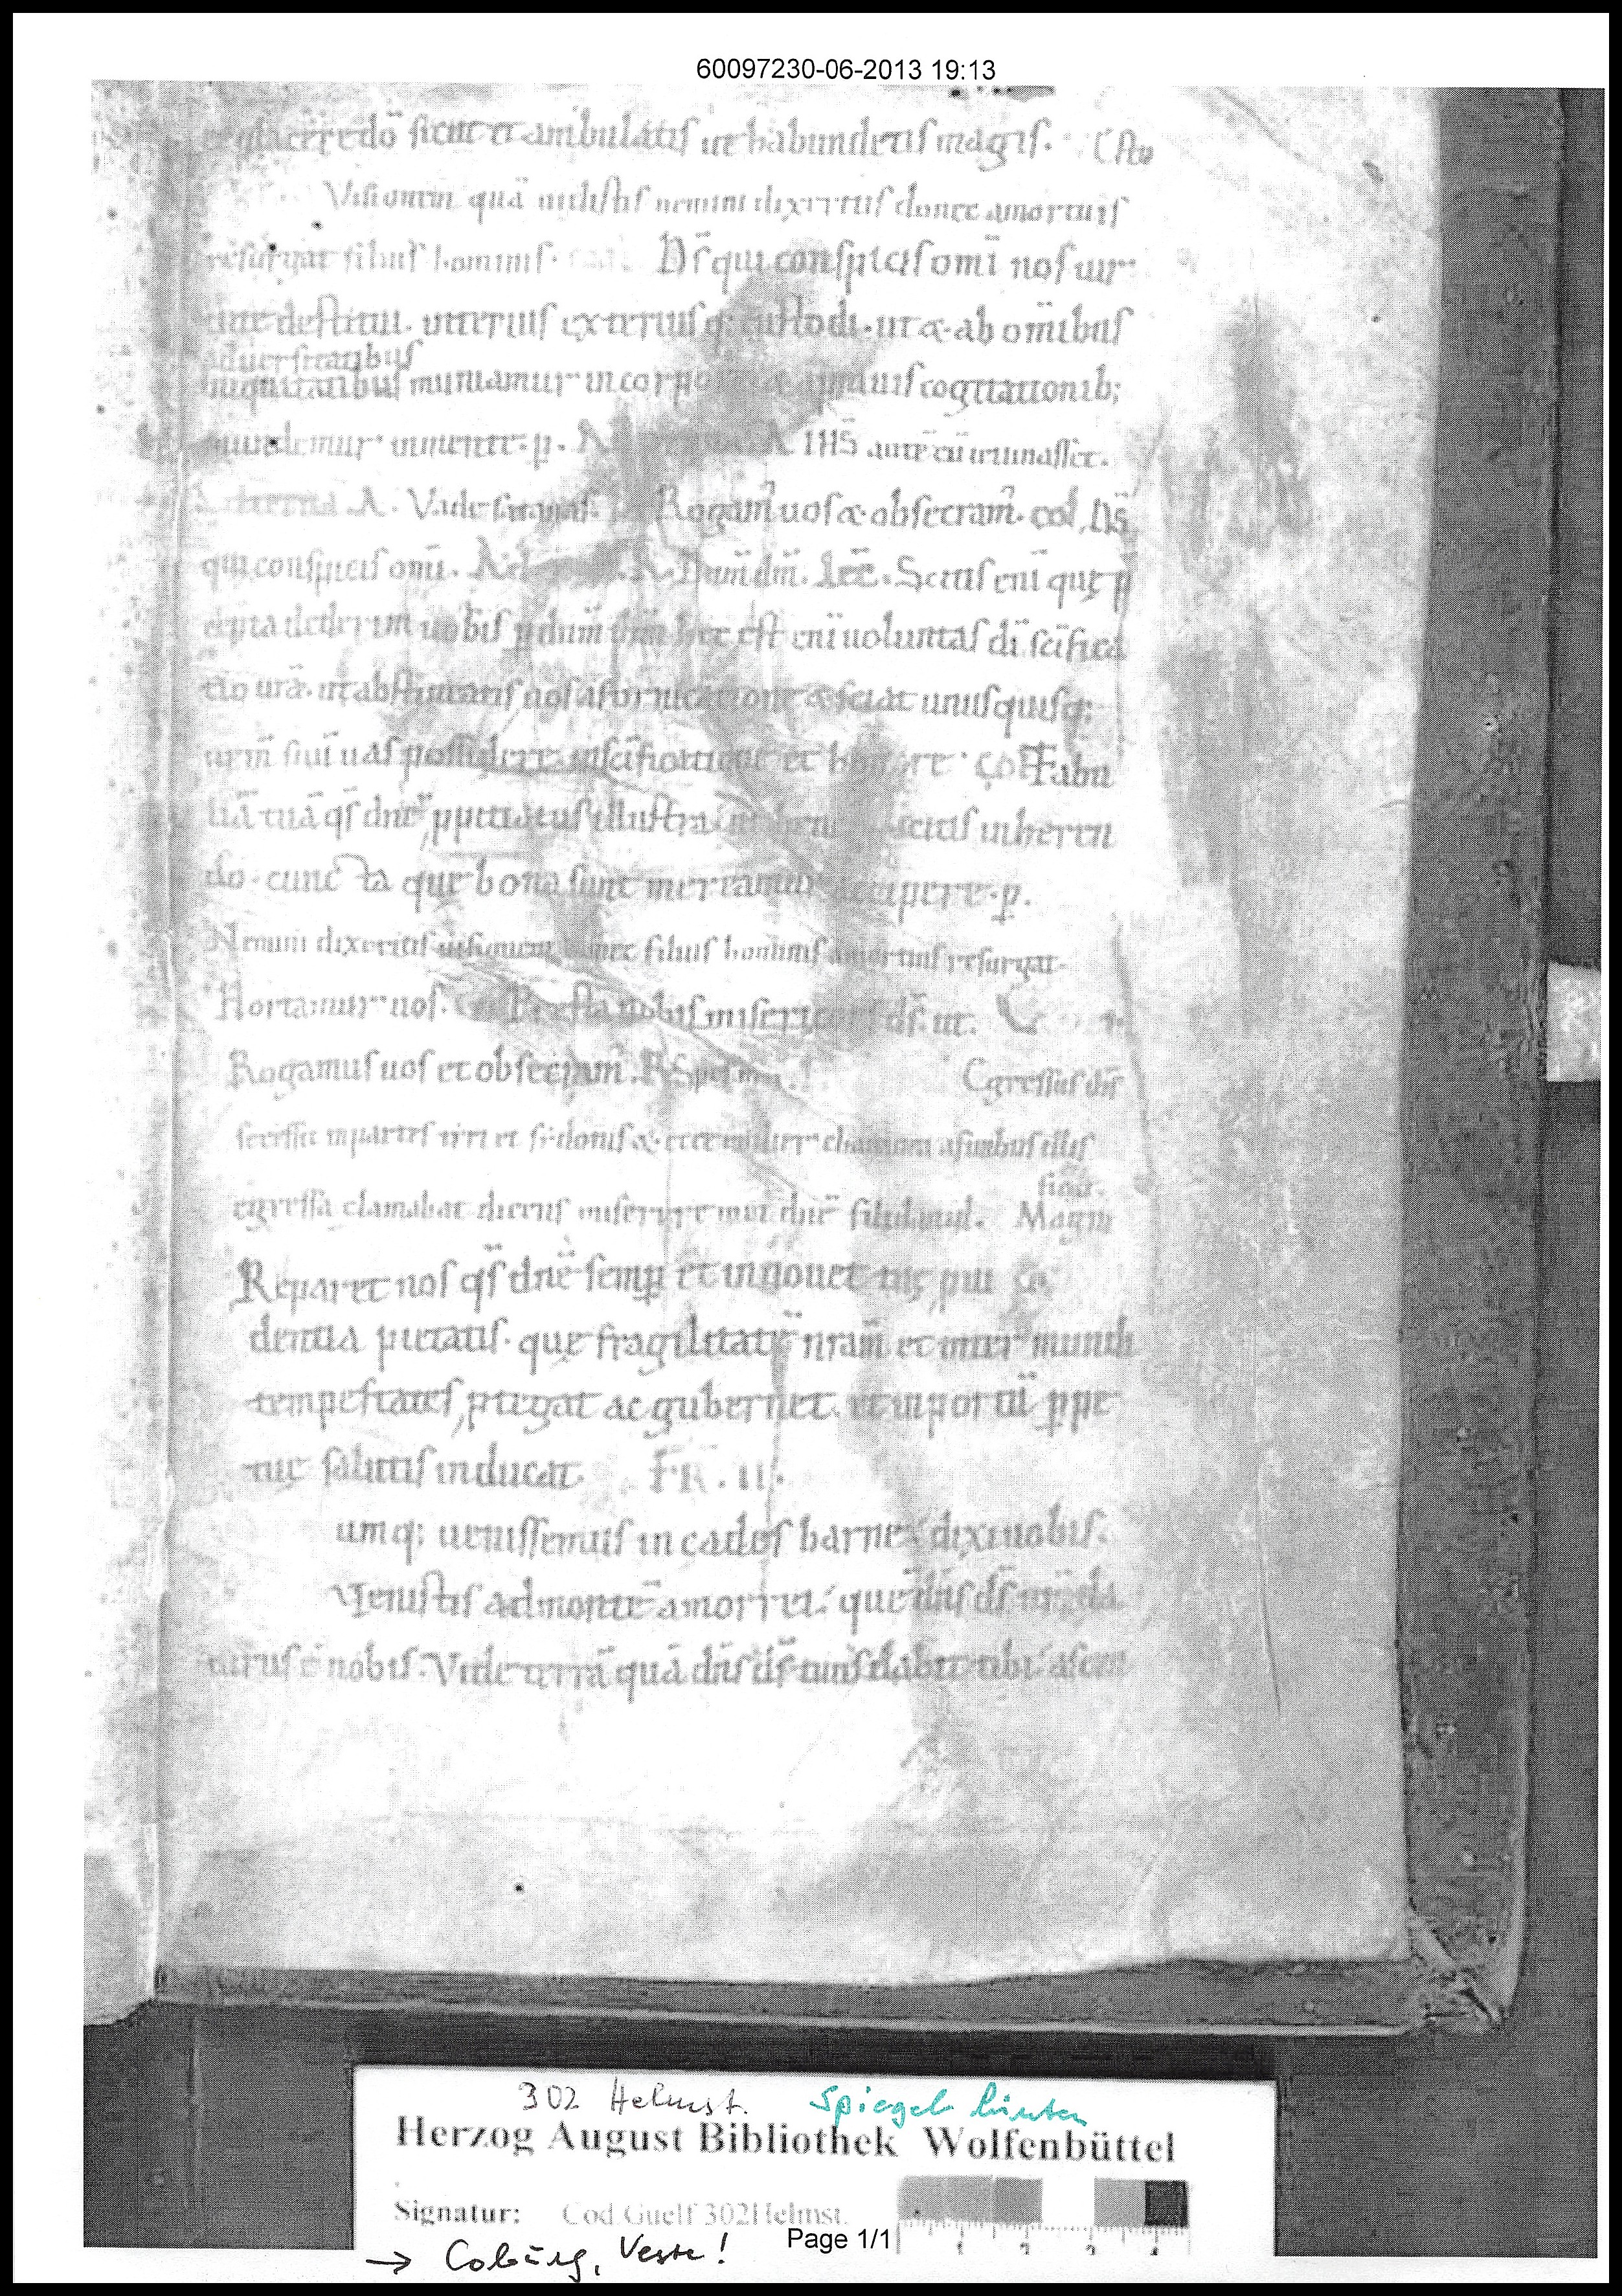 60097230-06-2013 19:13
placere dō sicut et ambulatis ut habundetis magis.
Visionem quā uidistis nemini dixeritis donec amortuis
resurgat filius hominis. Dś qui conspicis omī nos uir
tute destitui. interius exteriusq; custodi. ut & ab omībus
aduersitatibus
iniquitatibus muniamur in corpore & a prauis cogitationib;
mundemur inmente. p. A IHS autē cū ieiunasset.
A. Vade satanas. Rogam uos & obsecram. col. Dś
qui conspicis omī. Ad A. Dum dm. Lec̄. Scitis enī quę p
cepta dederim uobis p dum ihm hec est enī uoluntas dī scīfica
tio urā. ut abstineatis uos afornicatione & sciat unusquisq;
urm̄ suū uas possidere in scīficatione et honore. cōl Fabn
liā tuā qś dnē ppitiatus illustra beneplacitis inheren
do. cuncta que bona sunt mereamur accipere. p.
Nemini dixeritis uisionem donec filius hominis amortuis resurgat.
Hortamur uos. Presta nobis misericors dś. ut.
Rogamus uos et obsecram. R Spes mea. Egressus dns
secessit in partes tiri et sidonis & ecce mulier chananea afinibus illis
egressa clamabat dicens miserere mei dnē fili dauid. Magn
Reparet nos qś dnē semp et innouet tuę, pui
dentia pietatis. que fragilitatē nram et inter mundi
tempestates, ptegat ac gubernet. et in portū ppe
tuę salutis inducat. FR. II.
umq; uenissemus in cades barne dixi uobis.
Venistis ad montē amorrei. quē dns ds nr da
turus ē nobis. Vide terrā quā dns ds tuus dabit tibi. ascen
302 Helmst. Spiegel hinten
Herzog August Bibliothek Wolfenbüttel
Signatur: Cod. Guelf 302 Helmst.
Page 1/1
→ Coburg, Veste!